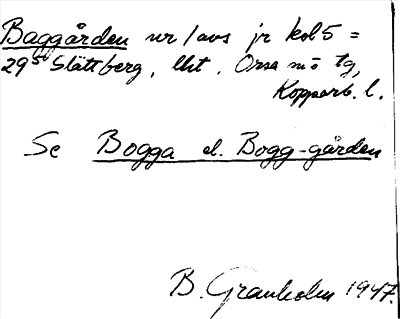 Baggården nr 1 avs jr kol 5 =
29⁵ Slättberg, Orsa ms tg,
Kopparb. l.
Se Bogga el. Bogg-gården
B. Granholm 1947.